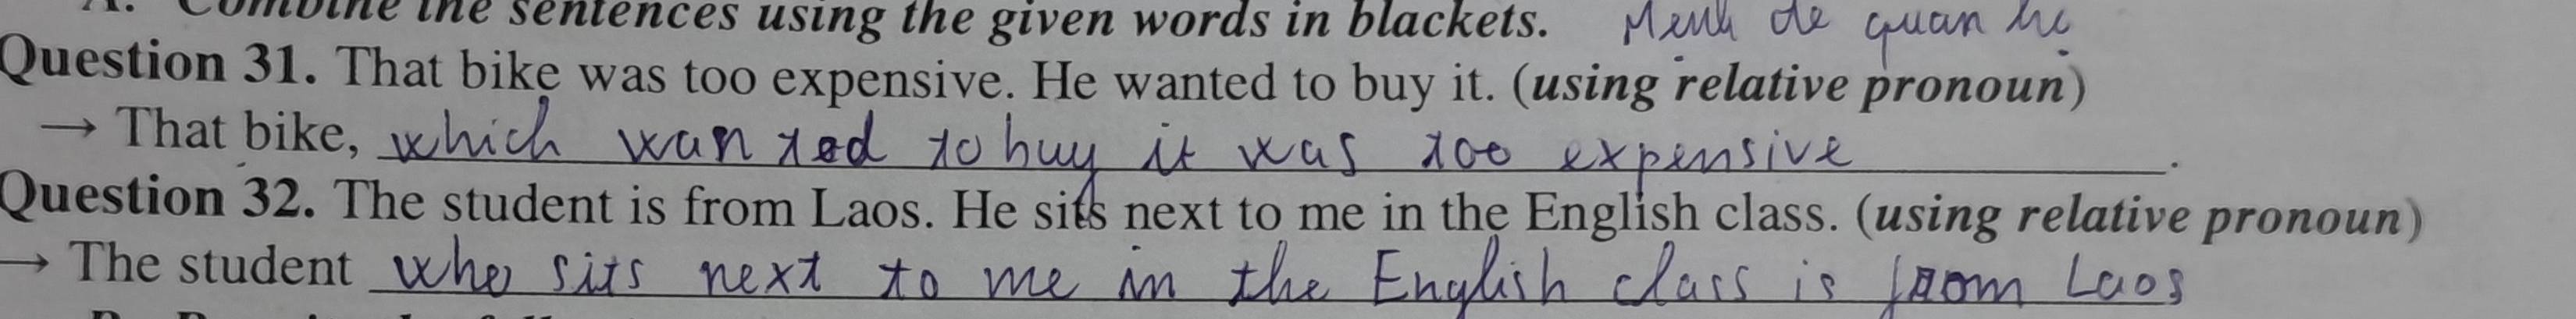 A. Combine the sentences using the given words in blackets. Mệnh đề quan hệ
Question 31. That bike was too expensive. He wanted to buy it. (using relative pronoun)
→ That bike, which wanted to buy it was too expensive.
Question 32. The student is from Laos. He sits next to me in the English class. (using relative pronoun)
→ The student who sits next to me in the English class is from Laos